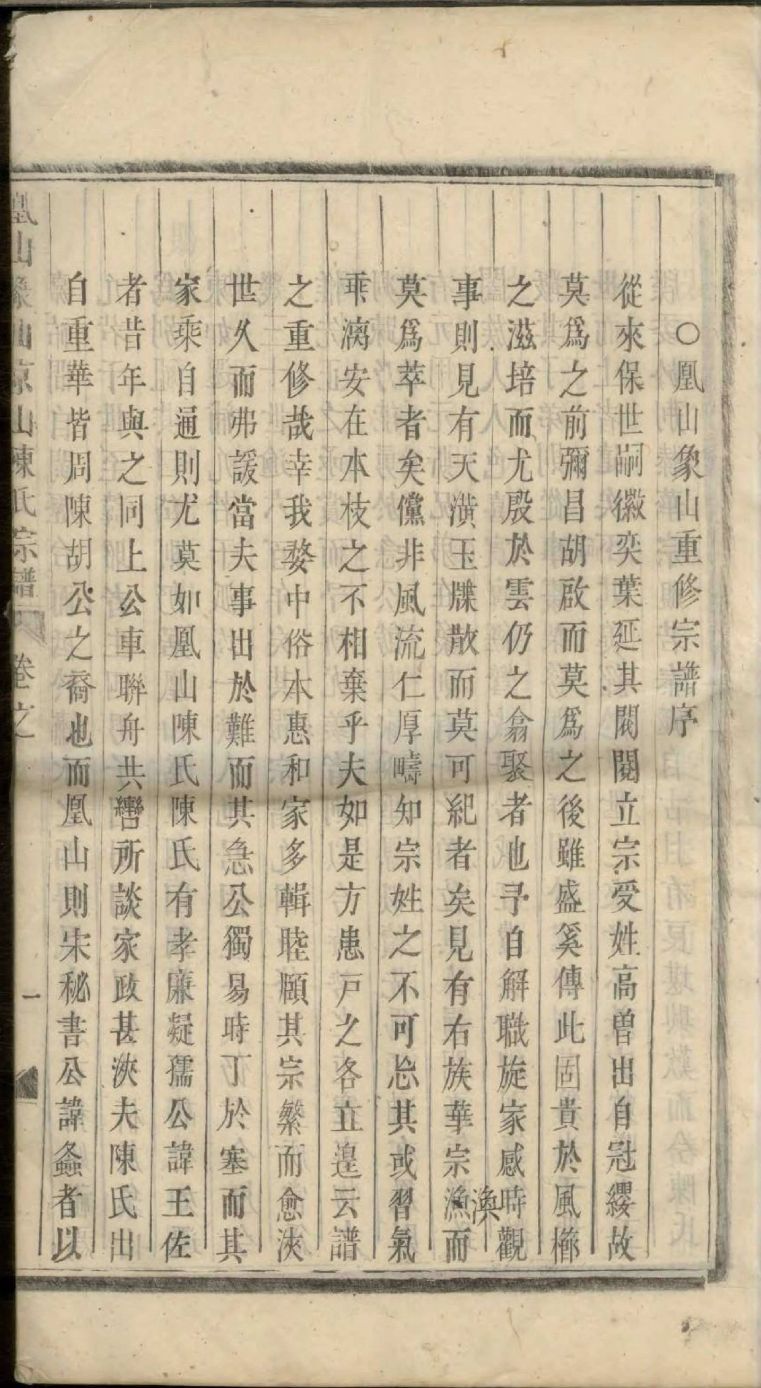 ○凰山象山重修宗譜序
從來保世嗣徽奕葉延其閥閱立宗受姓高曾出自冠纓故
莫爲之前彌昌胡啟而莫爲之後雖盛奚傳此固貴於風櫛
之滋培而尤殷於雲仍之翕聚者也予自解職旋家感時觀
渙
事則見有天潢玉牒散而莫可紀者矣見有右族華宗漁而
莫爲萃者矣儻非風流仁厚疇知宗姓之不可忘其或習氣
乖漓安在本枝之不相棄乎夫如是方患戸之各立遑云譜
之重修哉幸我婺中俗本惠和家多輯睦願其宗繁而愈浹
世久而弗諼當夫事出於難而其急公獨易時丁於塞而其
家乘自通則尤莫如凰山陳氏陳氏有孝廉凝儒公諱王佐
者昔年與之同上公車聯舟共轡所談家政甚浹夫陳氏出
自重華皆周陳胡公之裔也而凰山則宋秘書公諱螽者以
凰山象山京山陳氏宗譜 卷之 一